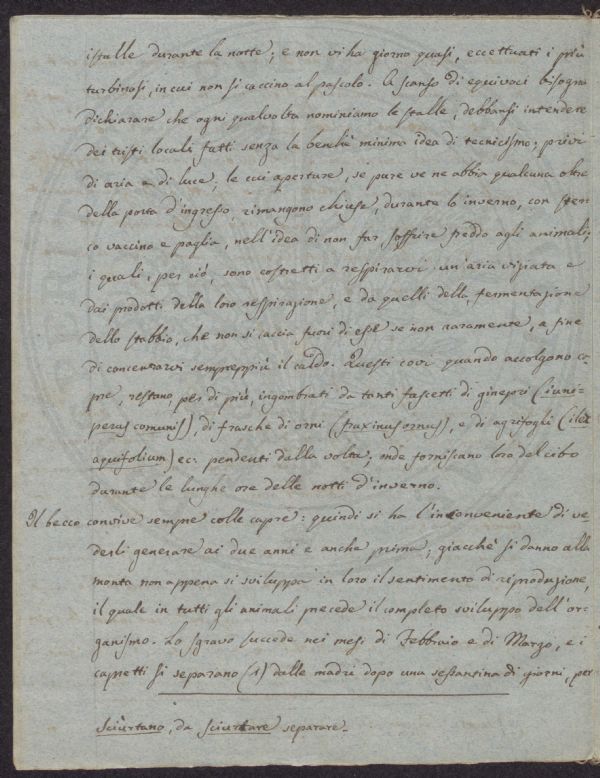 istalle durante la notte; e non vi ha giorno quasi, eccettuati i più
turbinosi, in cui non si caccino al pascolo. A scanso di equivoci bisogna
dichiarare che ogni qualvolta nominiamo le stalle, debbansi intendere
dei tristi locali fatti senza la benchè minima idea di tecnicismo: privi
di aria e di luce; le cui aperture, se pure ve ne abbia qualcuna oltre
della porta d'ingresso, rimangono chiuse, durante lo inverno, con ster-
co vaccino e paglia, nell'idea di non far soffrire freddo agli animali;
i quali, per ciò, sono costretti a respirarvi un'aria viziata e
dai prodotti della loro respirazione, e da quelli della fermentazione
dello stabbio, che non si caccia fuori di esse se non raramente, a fine
di concentrarvi semprepiù il caldo. Questi covi quando accolgono ca-
pre, restano, per di più, ingombrati da tanti fascetti di ginepri (iuni-
perus comunis), di frasche di orni (fraxinus ornus), e di agrifogli (ilex
aquifolium) ec: pendenti dalla volta; onde forniscano loro del cibo
durante le lunghe ore delle notti d'inverno.
Il becco convive sempre colle capre: quindi si ha l'inconveniente di ve-
derli generare ai due anni e anche prima, giacchè si danno alla
monta non appena si sviluppa in loro il sentimento di riproduzione,
il quale in tutti gli animali precede il completo sviluppo dell'or-
ganismo. Lo sgravo succede nei mesi di Febbraio e di Marzo, e i
capretti si separano (1) dalle madri dopo una sessantina di giorni, per
sciurtano, da sciurtare separare.